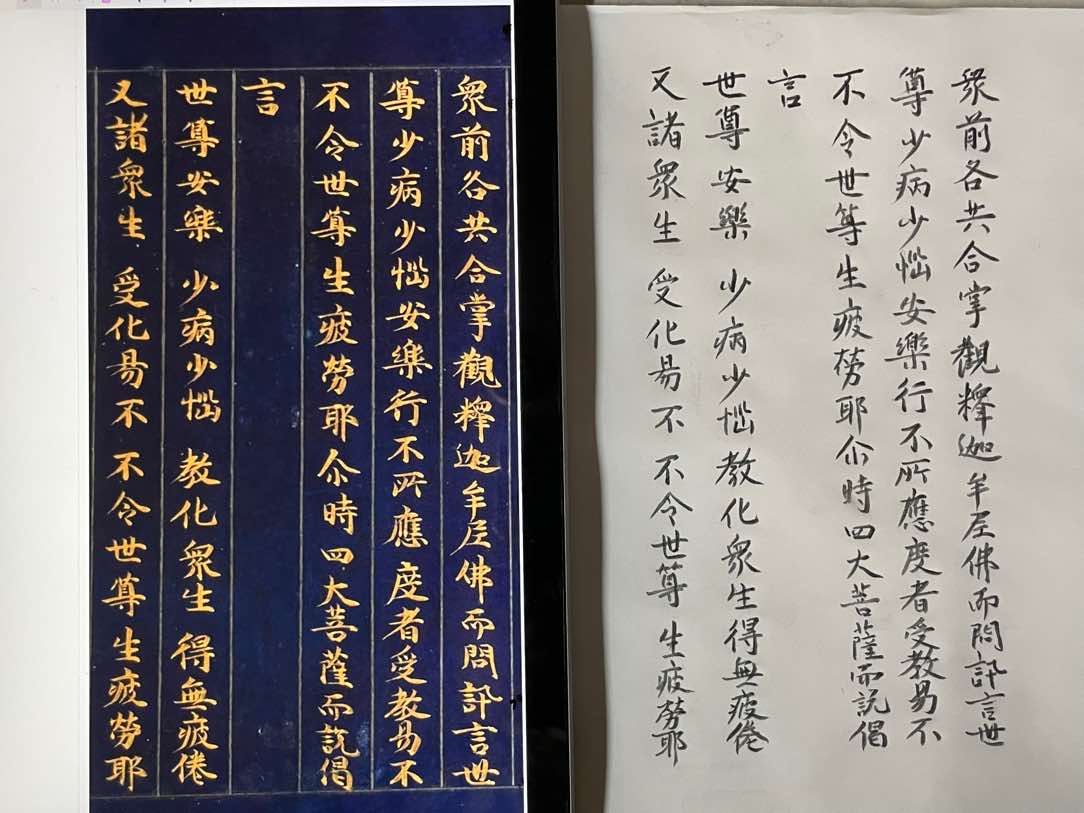 眾前各共合掌觀釋迦牟尼佛而問訊言世
尊少病少惱安樂行不所應度者受教易不
不令世尊生疲勞耶尒時四大菩薩而說偈
言
世尊安樂 少病少惱 教化眾生 得無疲倦
又諸眾生 受化易不 不令世尊 生疲勞耶
眾前各共合掌觀釋迦牟尼佛而問訊言世
尊少病少惱安樂行不所應度者受教易不
不令世尊生疲勞耶尒時四大菩薩而說偈
言
世尊安樂 少病少惱教化眾生得無疲倦
又諸眾生 受化易不 不令世尊 生疲勞耶